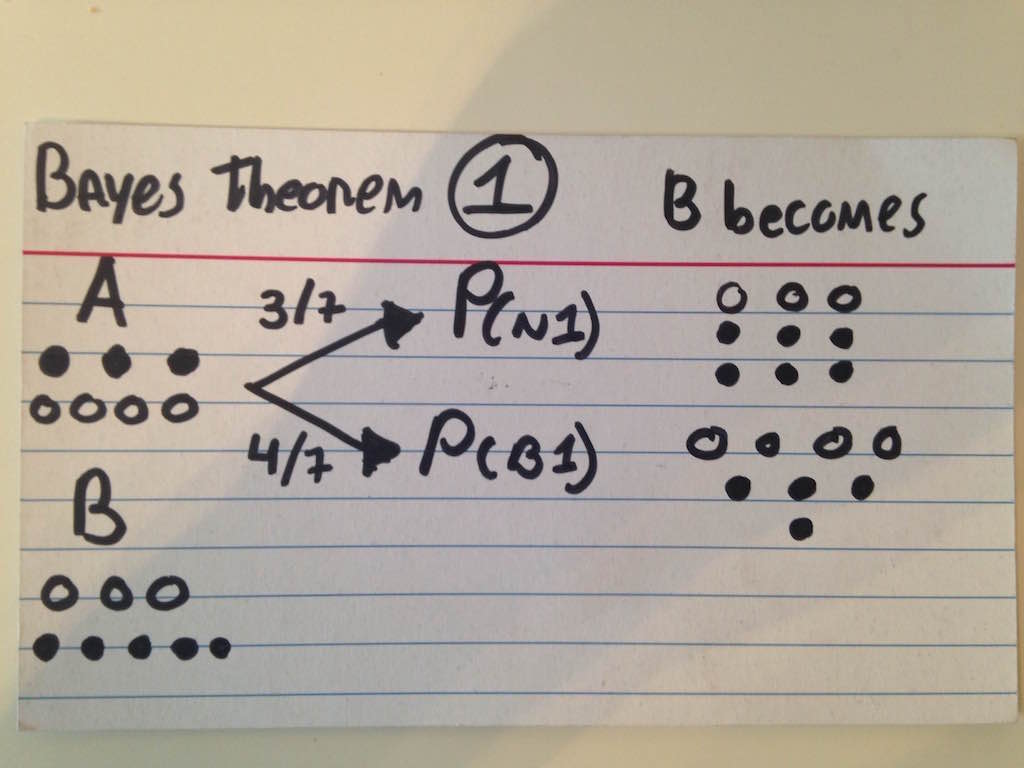 Bayes Theorem 1
B becomes
A
3/7
P(N1)
4/7
P(B1)
B